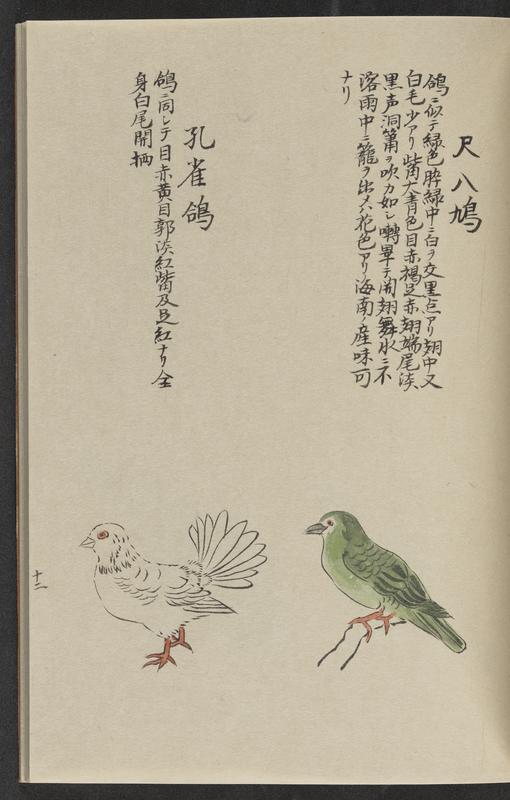 尺八鳩
鴿ニ似テ緑色脺緑中ニ白ヲ交黒点アリ翅中又
白毛少アリ觜大青色目赤褐足赤翅端尾淡
黒声洞簫ヲ吹カ如シ囀畢テ開翅舞水ニ不
溶雨中ニ籠ヲ出メハ花色アリ海南ノ産味可
ナリ
孔雀鴿
鴿ニ同シテ目赤黄目郭淡紅觜及足紅ナリ全
身白尾開
十二